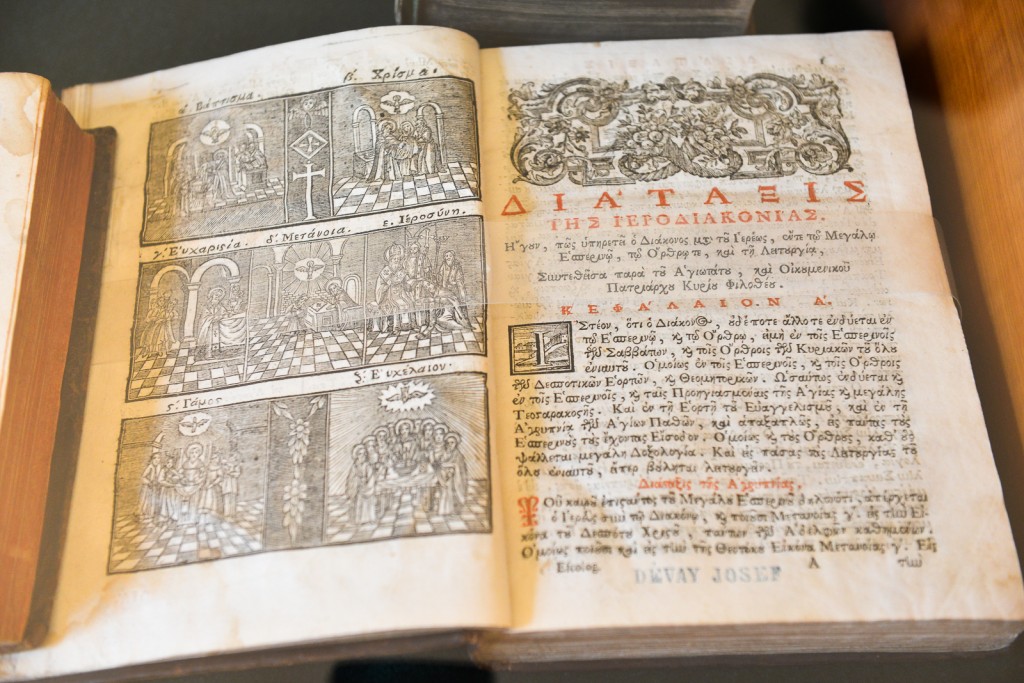 α. Βάπτισμα.
β. Χρίσμα.
γ. Εὐχαριςία.
δ. Μετάνοια.
ε. Ἱεροσύνη.
ς. Γάμος
ζ. Εὐχέλαιον.
ΔΙΑΤΑΞΙΣ
ΤΗΣ ΙΕΡΟΔΙΑΚΟΝΙΑΣ.
Ἤγουν, πῶς ὑπηρετεῖ ὁ Διάκονος μετὰ τοῦ Ἱερέως, οὔτε τῷ Μεγάλῳ
Ἑσπερινῷ, τῷ Ὄρθρῳ τε, καὶ τῇ Λειτουργίᾳ,
Συντεθεῖσα παρὰ τοῦ Ἁγιωτάτου, καὶ Οἰκουμενικοῦ
Πατριάρχου Κυρίου Φιλοθέου.
ΚΕΦΑΛΑΙΟΝ Α.
Ἰστέον, ὅτι ὁ Διάκονος, οὐδέποτε ἄλλοτε ἐνδύεται ἐν
τῷ Ἑσπερινῷ, καὶ τῷ Ὄρθρῳ, εἰμὴ ἐν τοῖς Ἑσπερινοῖς
τῶν Σαββάτων, καὶ τοῖς Ὄρθροις τῶν Κυριακῶν τοῦ ὅλου
ἐνιαυτοῦ. Ὁμοίως ἐν τοῖς Ἑσπερινοῖς, καὶ τοῖς Ὄρθροις
τῶν Δεσποτικῶν Ἑορτῶν, καὶ Θεομητορικῶν. Ὡσαύτως ἐνδύεται καὶ
ἐν τοῖς Ἑσπερινοῖς, καὶ ταῖς Προηγιασμέναις τῆς Ἁγίας καὶ μεγάλης
Τεσσαρακοστῆς. Καὶ ἐν τῇ Ἑορτῇ τοῦ Εὐαγγελισμοῦ, καὶ ἐν τῇ
Ἀγρυπνίᾳ τῶν Ἁγίων Παθῶν, καὶ ἁπαξαπλῶς, εἰς πάντας τοὺς
Ἑσπερινοὺς τοὺς ἔχοντας Εἴσοδον. Ὁμοίως καὶ τοὺς Ὄρθρους, καθ' οὓς
ψάλλεται μεγάλη Δοξολογία. Καὶ εἰς πάσας τὰς Λειτουργίας τοῦ
ὅλου ἐνιαυτοῦ, ἅπερ βούλεται λειτουργεῖν.
Διάταξις τῆς Ἀγρυπνίας.
Τοῦ καιροῦ ἐπιστάντος τοῦ Μεγάλου Ἑσπερινοῦ δηλονότι, ἀπέρχεται
ὁ Ἱερεὺς σὺν τῷ Διακόνῳ, καὶ ποιοῦσι Μετανοίας γ. εἰς τὴν Εἰ-
κόνα τοῦ Δεσπότου Χριστοῦ, πάντων τῶν Ἀδελφῶν καθημένων.
Ὁμοίως ποιοῦσι καὶ εἰς τὴν τῆς Θεοτόκου Εἰκόνα Μετανοίας γ. Εἰς
Α τὴν
DEVAY JOSEF